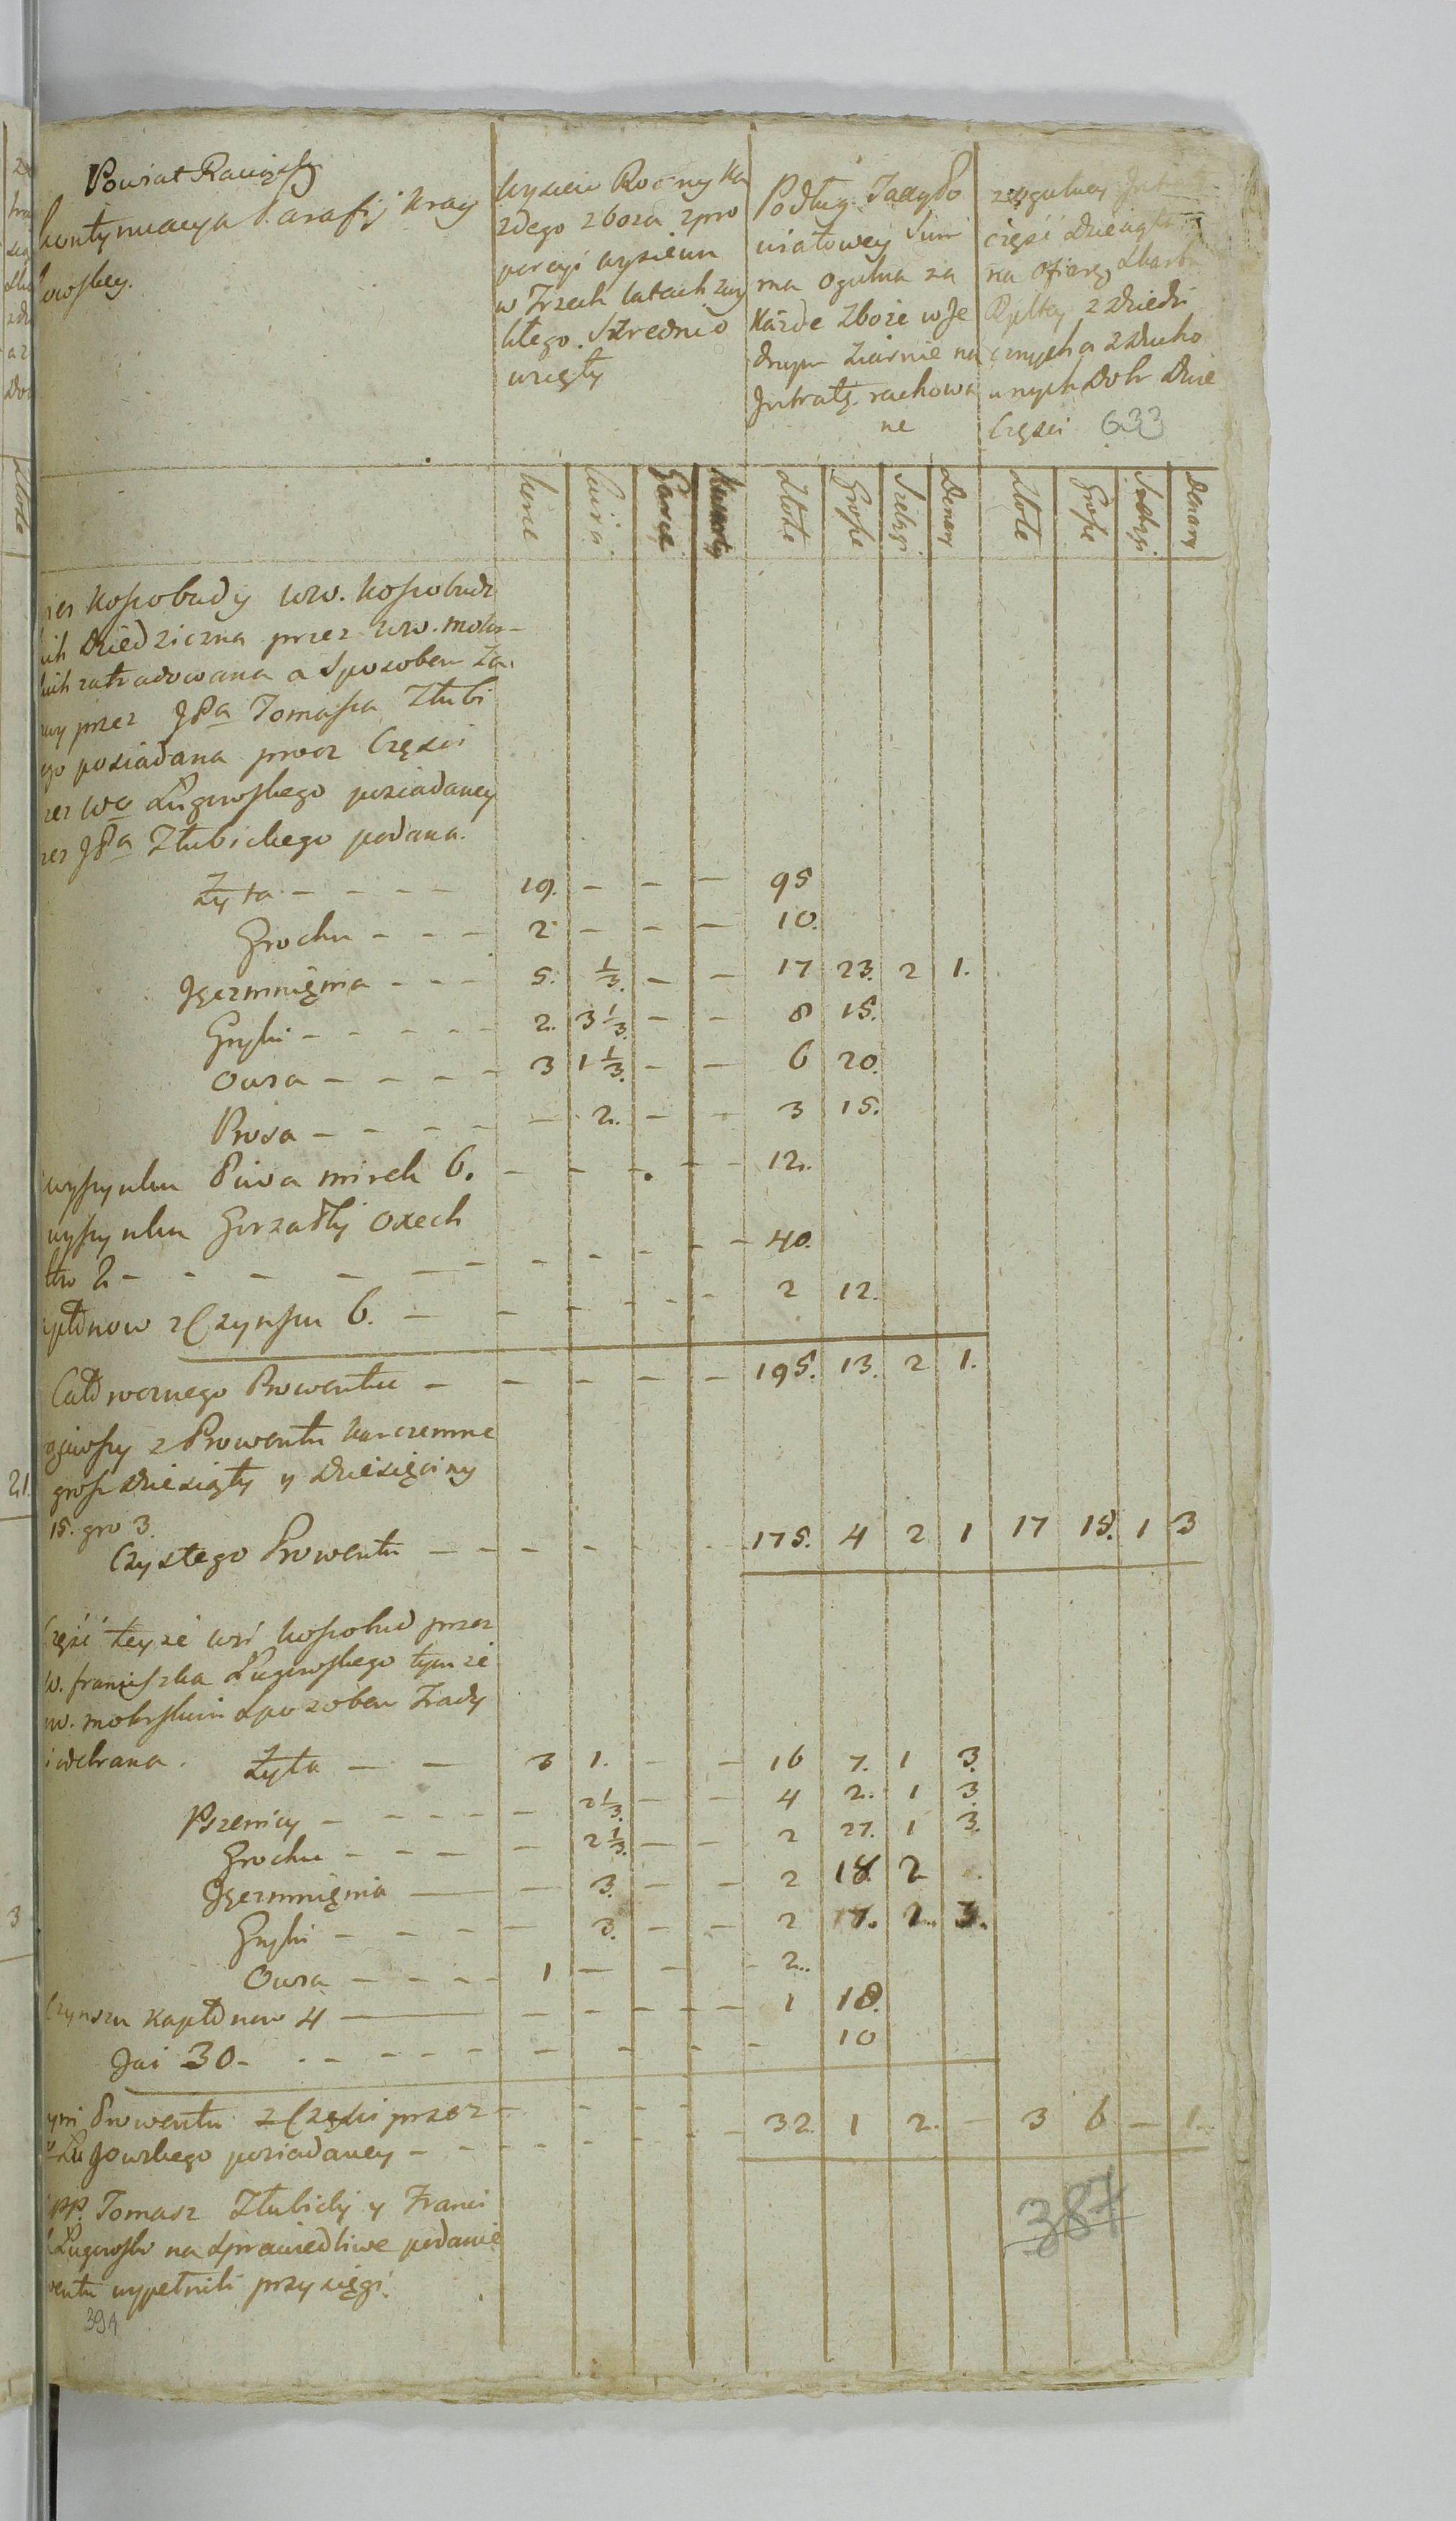 Powiat Rawizsky
kontynuacya Parafij Kray
kowskey.
Wysiew Roczny Ka
żdego zboża z pro
porcyi wysiewu
w Trzech latach zwy
kłego. Szrednio
wzięty
Podług Taxy Po
wiatowey Sum
ma ogulna za
Każde Zboże w Je
dnym Ziarnie na
Jntratę rachowa
ne
z ogulney Jntraty
część dziesiąta
na ofiarę Skarbu
Rpltey z Dziedzi
cznych a z Ducho
wnych Dobr Dwie
Części 633
Korce Cwierci Garce Kwarty Złote Grosze Szelągi Denary Złote Grosze Szelągi Denary
Kossobudy ww. Kossobudz
kich Dziedziczna przez ww. Mokr-
kich zatradowana a Sposobem Za
przez JPa Tomasza Złubi
go posiadana procz Części
zez Wo Ługowskiego posiadaney
zez JPa Złubickiego podana.
Żyta - - - - 19. - - - 95
Grochu - - - 2 - - - 10.
Jęczmnięnia - - - 5. 1/3. - - 17 23. 2 1.
Gryki - - - - - 2. 3 1/3. - - 8 15.
Owsa - - - - 3 1 1/3. - - 6 20.
Prosa - - - - - 2. - - 3 15.
wyszynku Piwa mirek 6. - - - - 12.
wyszynku Gorzałki oxech
tw 2 - - - - - - - - - 40.
kapłonow z Czynszu 6. - - - - - 2 12.
Całorocznego Prowentu - - - - - 195. 13. 2 1.
z Prowentu karczemne
grosz dziesiąty y dziesięciny
15. gro 3.
Czystego Prowentu - - - - - - 175. 4 2 1 17 15. 1 3
Część teyże wsi Kossobud przez
W. Franciszka Ługowskiego tymże
w. Mokrskim sposobem Trady
odebrana. Żyta - - 3 1. - - 16 7. 1 3.
Pszenicy - - - - - 2 1/3. - - 4 2. 1 3
Grochu - - - - 2 1/3. - - 2 27. 1 3.
Jęczmnięnia - - 3. - - 2 18. 2
Gryki - - - - 3. - - 2 17. 2. 3.
Owsa - - - - 1 - - - 2.
Czynszu kapłonow 4 - - - - - - 1 18.
Jai 30 - - - - - - - - - - 10
Prowentu z Części przez - - - -
Ługowskiego posiadaney - - - - - - 32. 1 2. - 3 6 - 1.
PP. Tomasz Złubicki y Franci
Ługowski na sprawiedliwe podanie
wentu wypełnili przysięgi.
387
394
21.
3